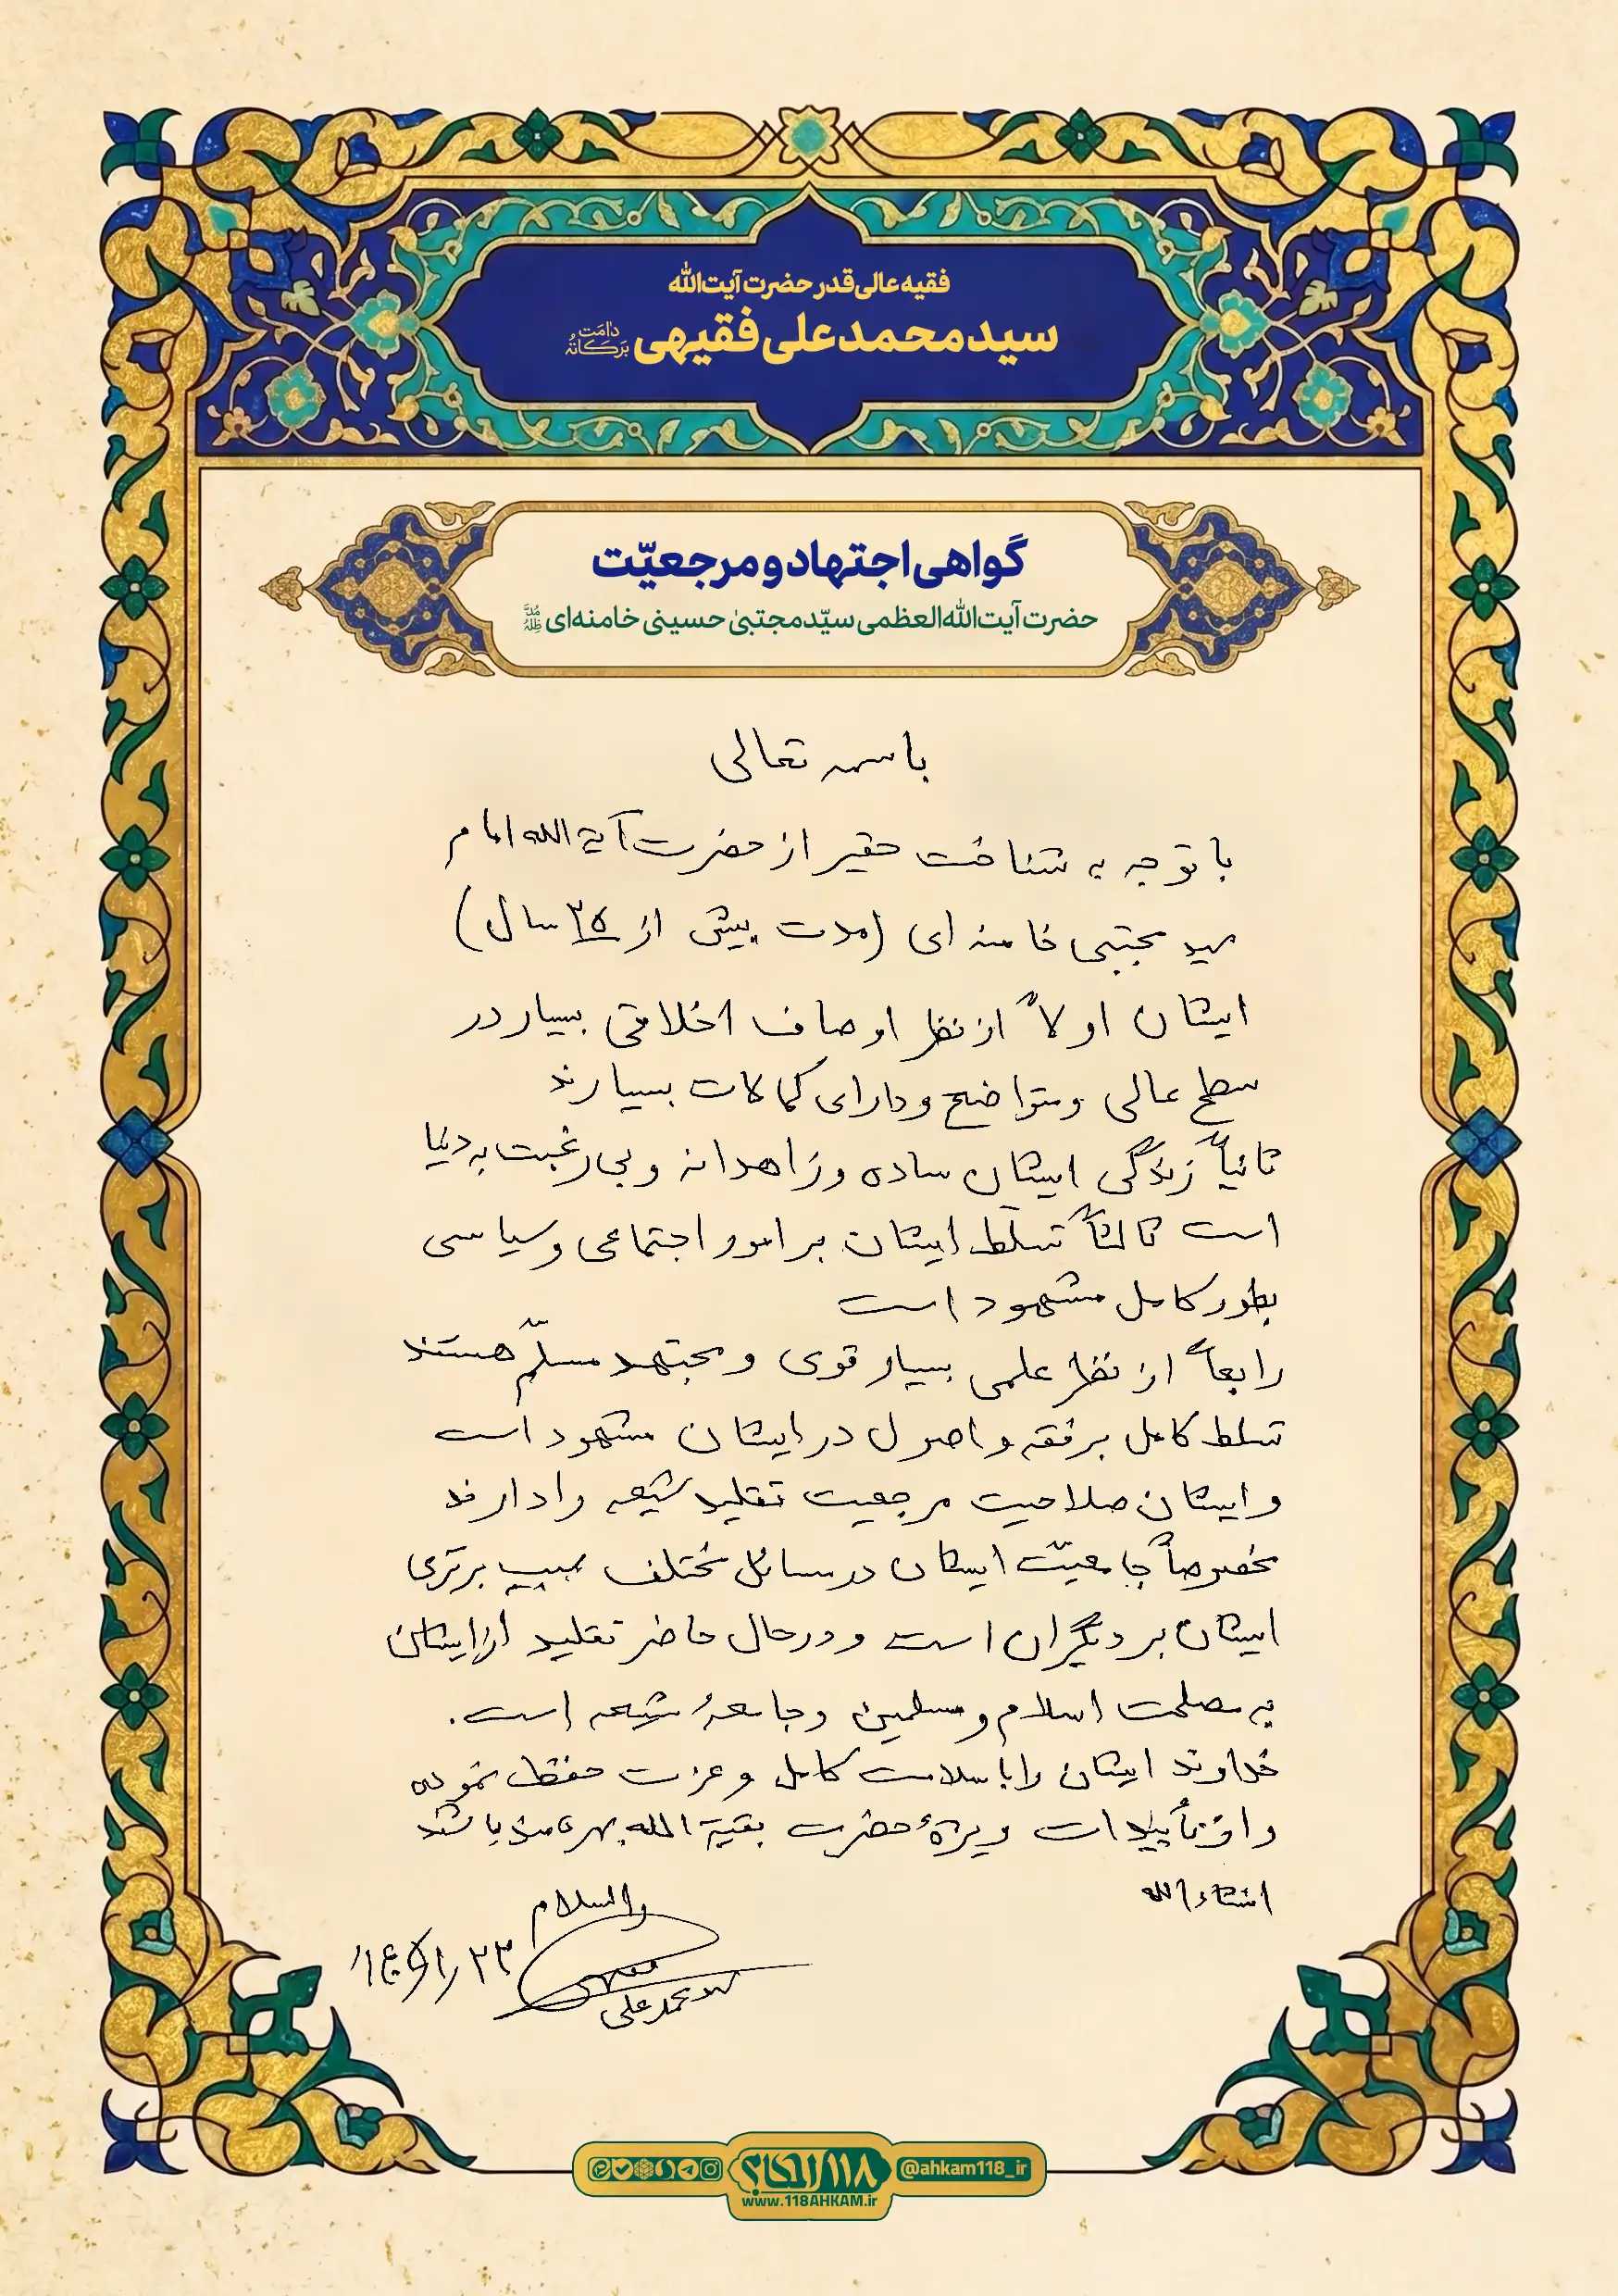 فقیه عالی‌قدر حضرت آیت‌الله
سید محمدعلی فقیهی دامَت بَرَکاتُهُ
گواهی اجتهاد و مرجعیّت
حضرت آیت‌الله‌العظمی سیّدمجتبیٰ حسینی خامنه‌ای مُدَّ ظِلُّهُ
باسمه تعالی
با توجه به شناخت حقیر از حضرت آیة الله امام
سید مجتبی خامنه ای (مدت بیش از ۲۵ سال)
ایشان اولاً از نظر اوصاف اخلاقی بسیار در
سطح عالی و متواضع و دارای کمالات بسیارند
ثانیاً زندگی ایشان ساده و زاهدانه و بی رغبت به دنیا
است ثالثاً تسلط ایشان بر امور اجتماعی و سیاسی
بطور کامل مشهود است
رابعاً از نظر علمی بسیار قوی و مجتهد مسلّم هستند
تسلط کامل بر فقه و اصول در ایشان مشهود است
و ایشان صلاحیت مرجعیت تقلید شیعه را دارند
مخصوصاً جامعیّت ایشان در مسائل مختلف سبب برتری
ایشان بر دیگران است و در حال حاضر تقلید از ایشان
به مصلحت اسلام و مسلمین و جامعۀ شیعه است.
خداوند ایشان را با سلامت کامل و عزت حفظ نموده
و از تأییدات ویژۀ حضرت بقیة الله بهره مند باشند
انشاءالله
والسلام
فقیهی
سید محمد علی
۱۱۸ احکام
@ahkam118_ir
www.118AHKAM.ir